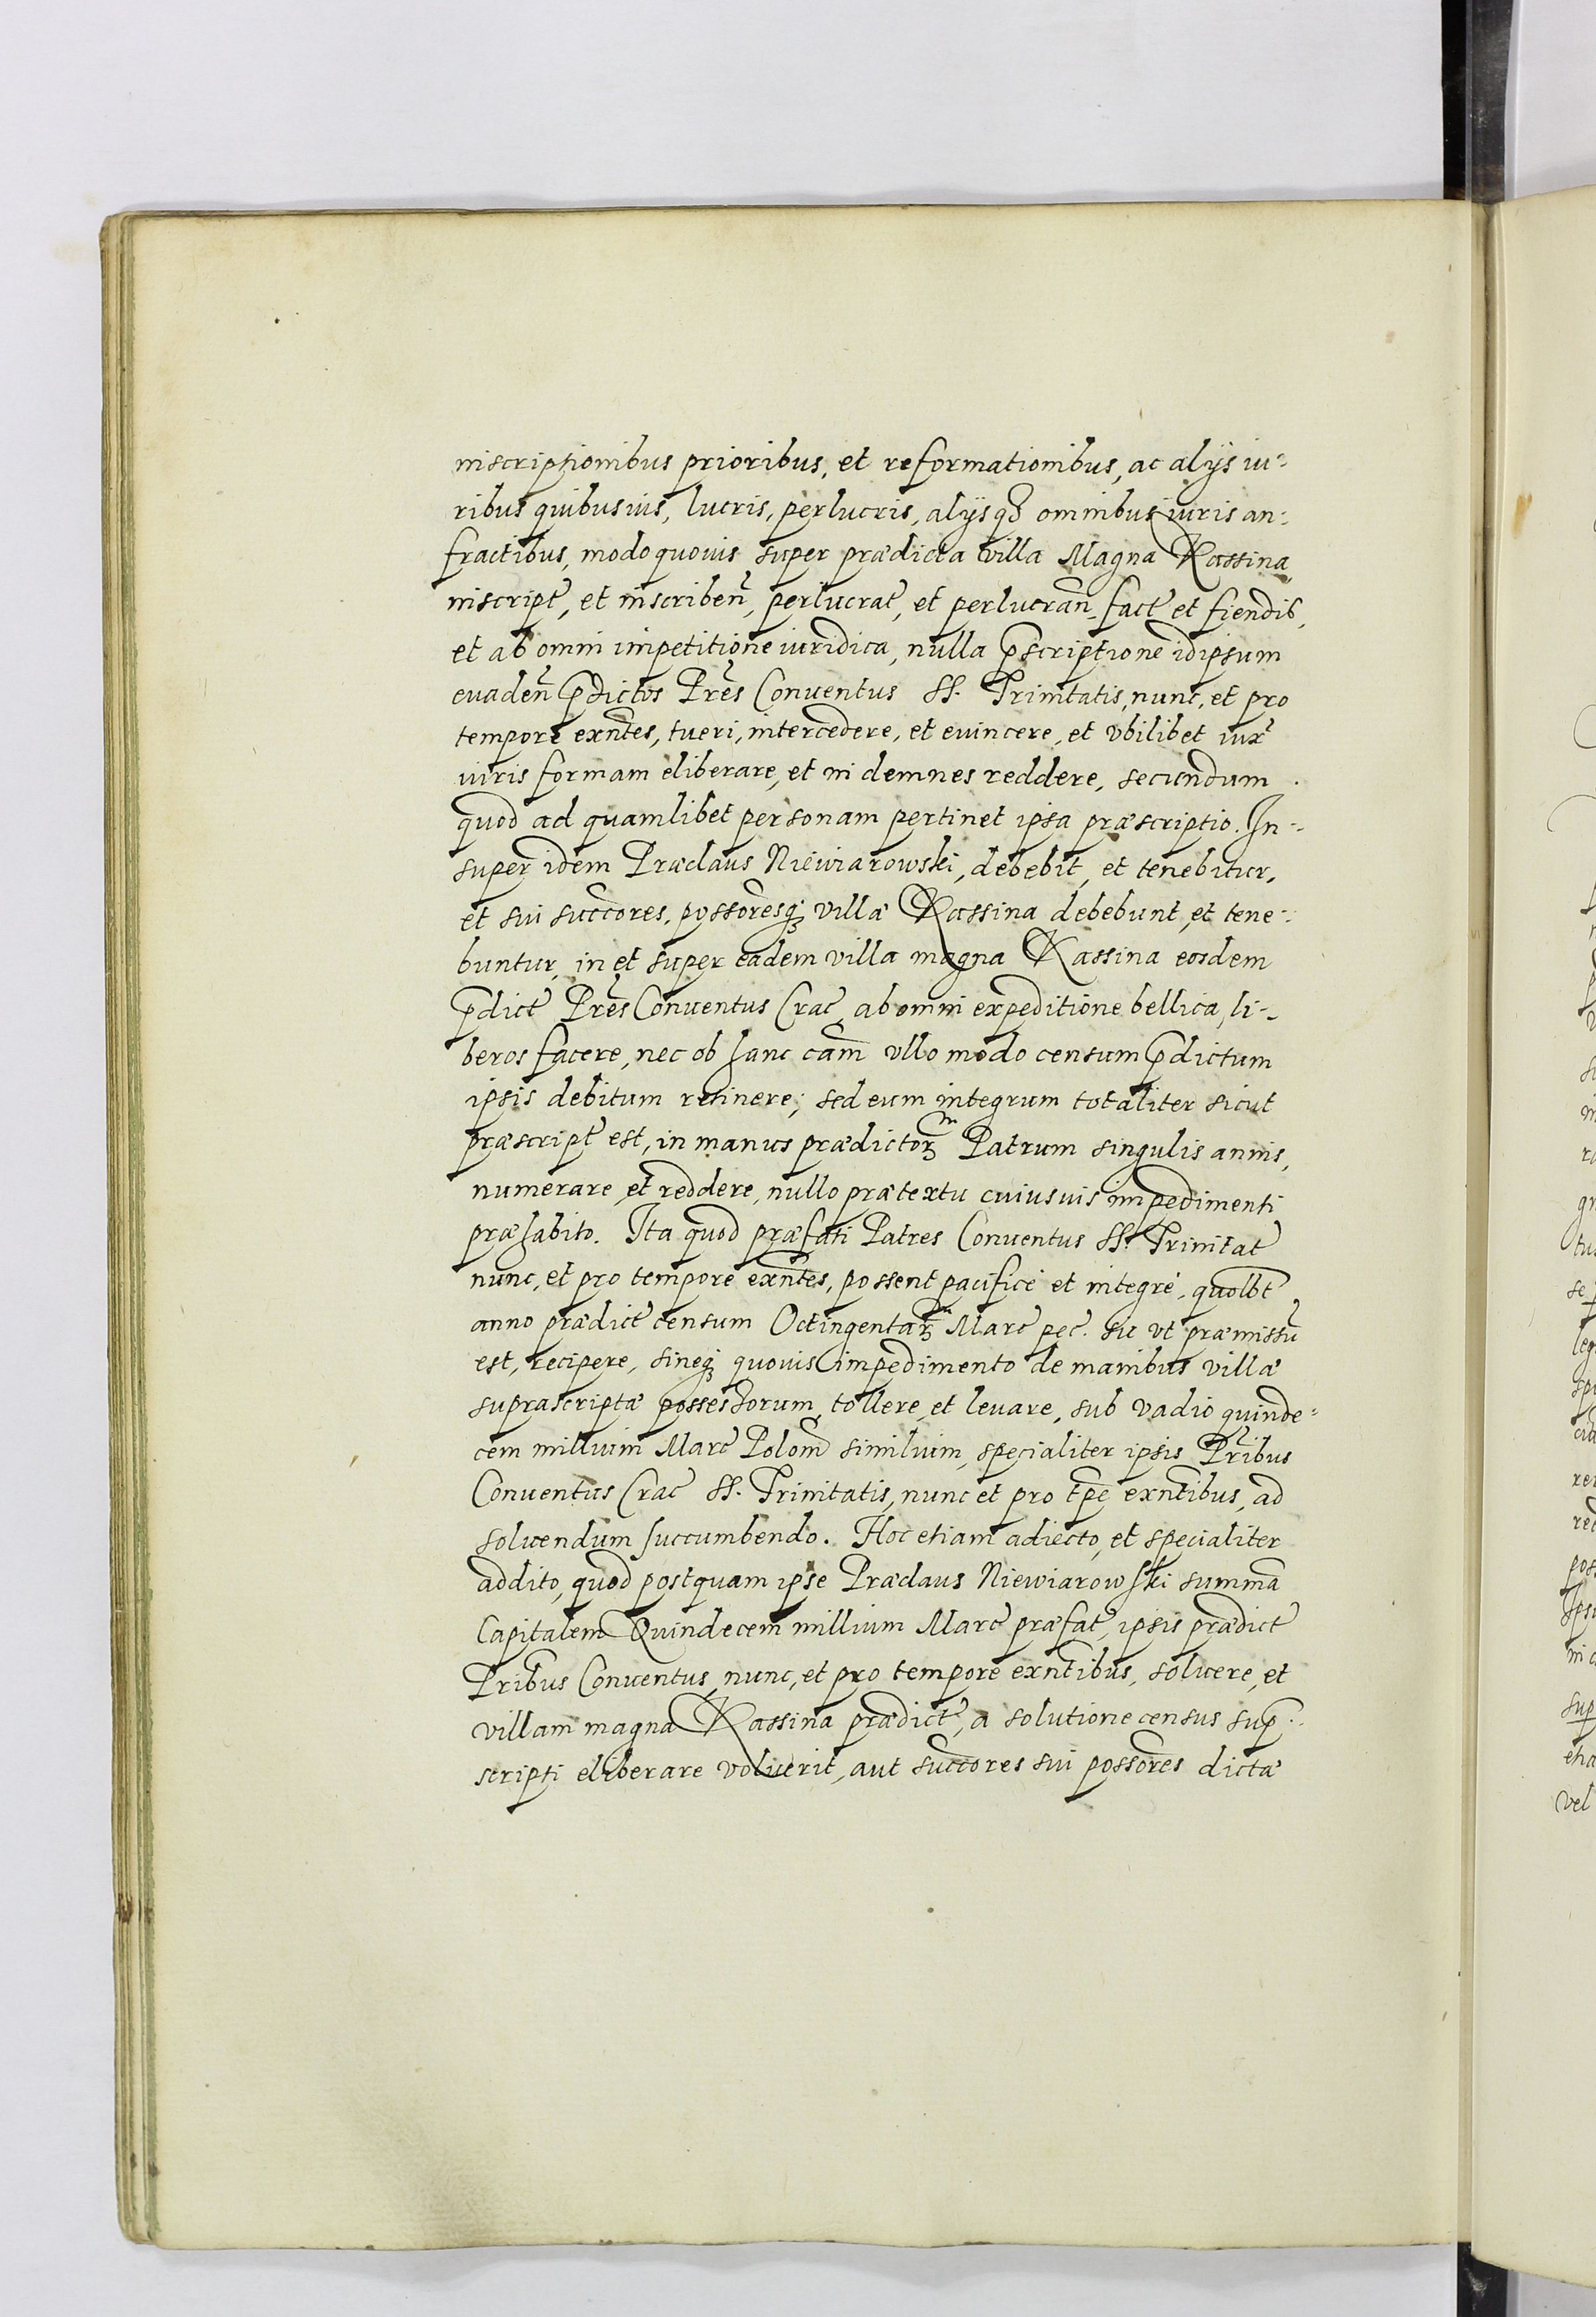 inscriptionibus prioribus, et reformationibus, ac alijs iu-
ribus quibusuis, lucris, perlucris, alijsq3 omnibus iuris an-
fractibus, modo quouis super prædicta villa Magna Kassina
inscript, et inscriben, perlucrat, et perlucran, fact et fiendis,
et ab omni impetitione iuridica, nulla p̄scriptione idipsum
euaden̄ p̄dictos Pr̄es Conuentus SS. Trinitatis, nunc, et pro
tempore exn̄tes, tueri, intercedere, et euincere, et vbilibet iux̄
iuris formam eliberare, et indemnes reddere, secundum
quod ad quamlibet personam pertinet ipsa præscriptio. In-
super idem Præclaus Niewiarowski, debebit, et tenebitur,
et sui succ̄ores, poss̄oresq3 villæ Kassina debebunt, et tene-
buntur, in et super eadem villa magna Kassina eosdem
p̄dict Pr̄es Conuentus Crac, ab omni expeditione bellica, li-
beros facere, nec ob hanc cām vllo modo censum p̄dictum
ipsis debitum retinere; sed eum integrum totaliter sicut
præscript est, in manus prædictoꝝ Patrum singulis annis,
numerare, et reddere, nullo prætextu cuiusuis impedimenti
præhabito. Ita quod præfati Patres Conuentus SS. Trinitat
nunc, et pro tempore exn̄tes, possent pacificè et integrè, quolb̄t
anno prædict censum Octingentaꝝ Marc pec. sic vt præmissū
est, recipere, sineq3 quouis impedimento de manibus villæ
suprascriptæ possessorum, tollere, et leuare, sub vadio quinde-
cem millium Marc Polon̄ similium, specialiter ipsis Pr̄ibus
Conuentus Crac SS. Trinitatis, nunc et pro tp̄e exn̄tibus, ad
soluendum succumbendo. Hoc etiam adiecto, et specialiter
addito, quod postquam ipse Præclaus Niewiarowski summā
Capitalem Quindecem millium Marc præfat, ipsis prædict
Pr̄ibus Conuentus, nunc, et pro tempore exn̄tibus, soluere, et
villam magna Kassina prædict, a solutione census sup̄-
scripti eliberare voluerit, aut succ̄ores sui poss̄ores dictæ